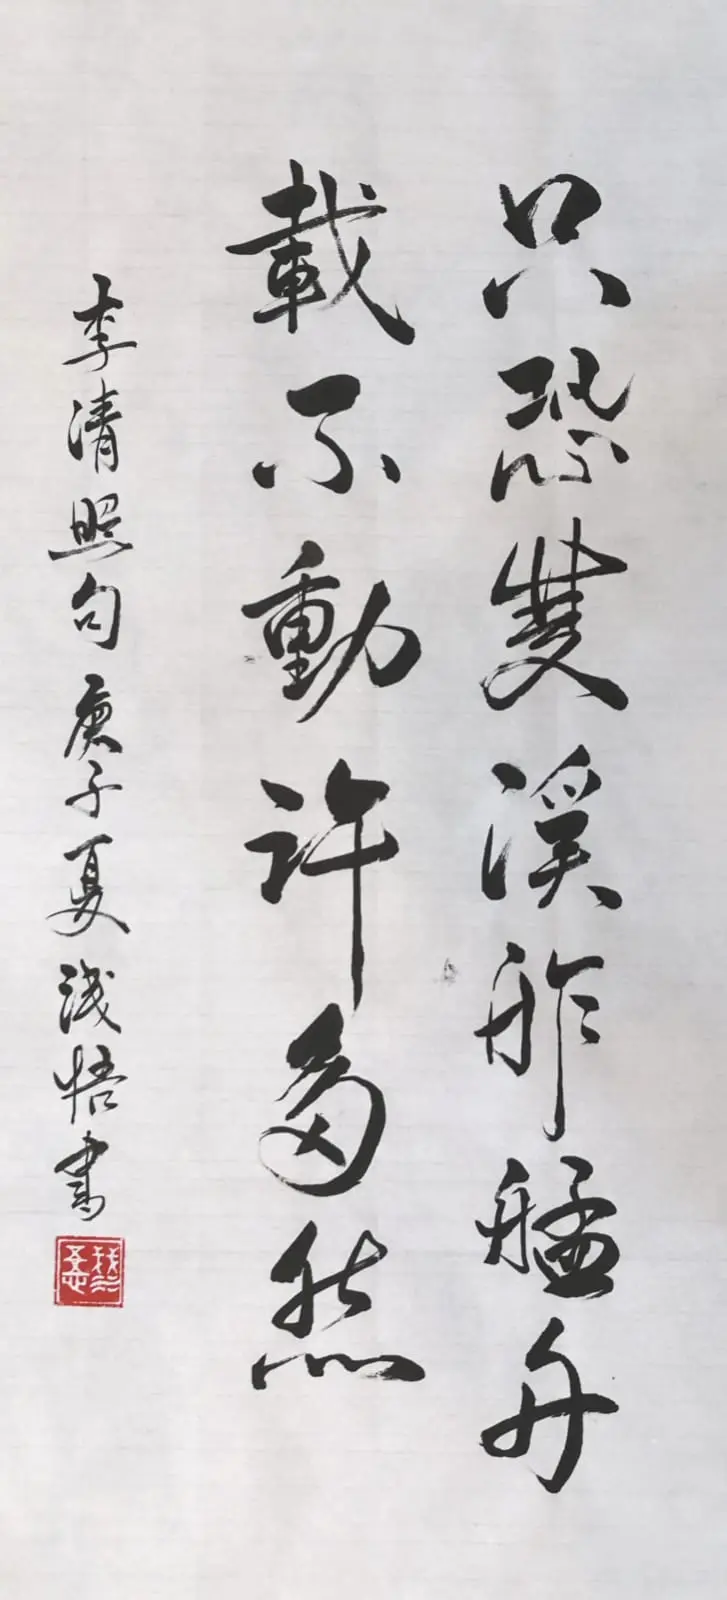 只恐雙溪舴艋舟
載不動許多愁
李清照句庚子夏淺悟書